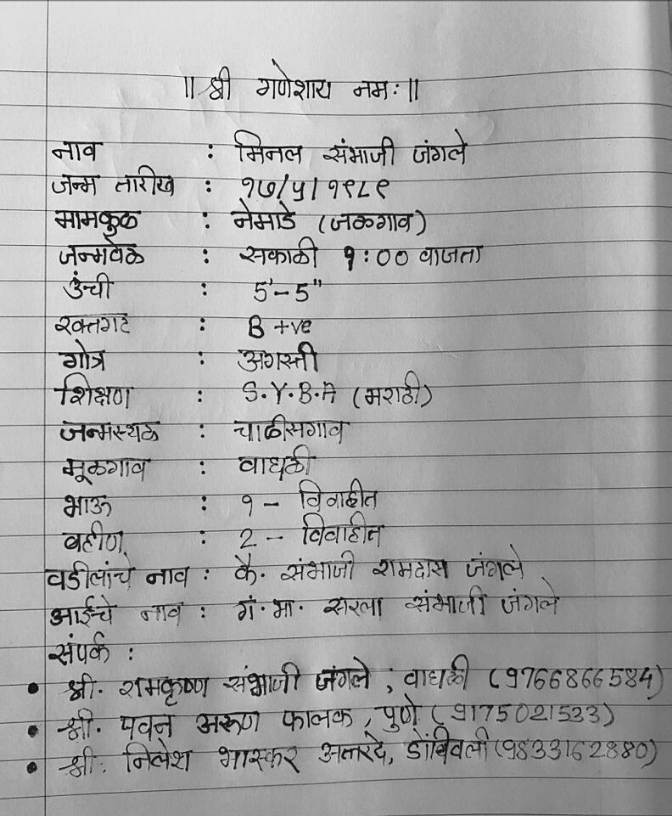 || श्री गणेशाय नमः ||
नाव : मिनल संभाजी जंगले
जन्म तारीख : १७/५/१९८९
मामकुळ : नेमाडे (जळगाव)
जन्मवेळ : सकाळी १:०० वाजता
उंची : 5'-5"
रक्तगट : B +ve
गोत्र : अगस्ती
शिक्षण : S.Y.B.A (मराठी)
जन्मस्थळ : चाळीसगाव
मूळगाव : वाघळी
भाऊ : १ - विवाहीत
बहीण : 2 - विवाहीत
वडीलांचे नाव : कै. संभाजी रामदास जंगले
आईचे नाव : गं.भा. सरला संभाजी जंगले
संपर्क :
• श्री. रामकृष्ण संभाजी जंगले, वाघळी (9766866584)
• श्री. पवन अरूण फालक, पुणे (9175021533)
• श्री. निलेश भास्कर अत्तरदे, डोंबिवली (9833162880)